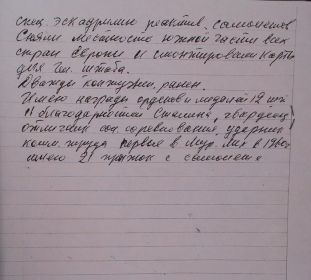 спец. эскадрилии реактив. самолетов
Сняли местность южной части всех
стран Европы и смонтировали карты
для Ген. штаба.
Дважды контужен, ранен.
Имею наград орденов и медалей 12 шт
11 благодарностей Сталина, гвардеец,
отличник соц. соревнования, ударник
комм. труда первые в Мур. в 1960г
имею 21 прыжок с самолета